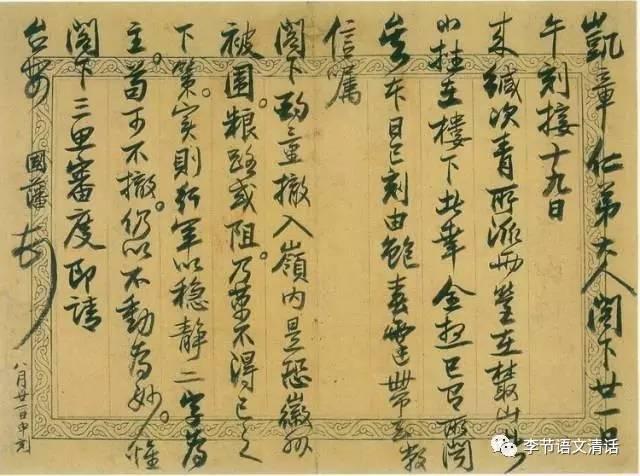 凱章仁弟大人閣下廿一日
午刻接十九日
來緘次青所派兩營在叢山
在樓下此
本日巳刻由鮑春霆帶去
信囑
閣下酌量撤入嶺內是恐徽州
被圍。糧路或阻。乃萬不得已之
下策。實則行軍以穩靜二字為
主。苟可不撤仍以不動為妙。惟
閣下三思審度即請
台安 國藩頓
八月廿一日申刻
李节语文清话